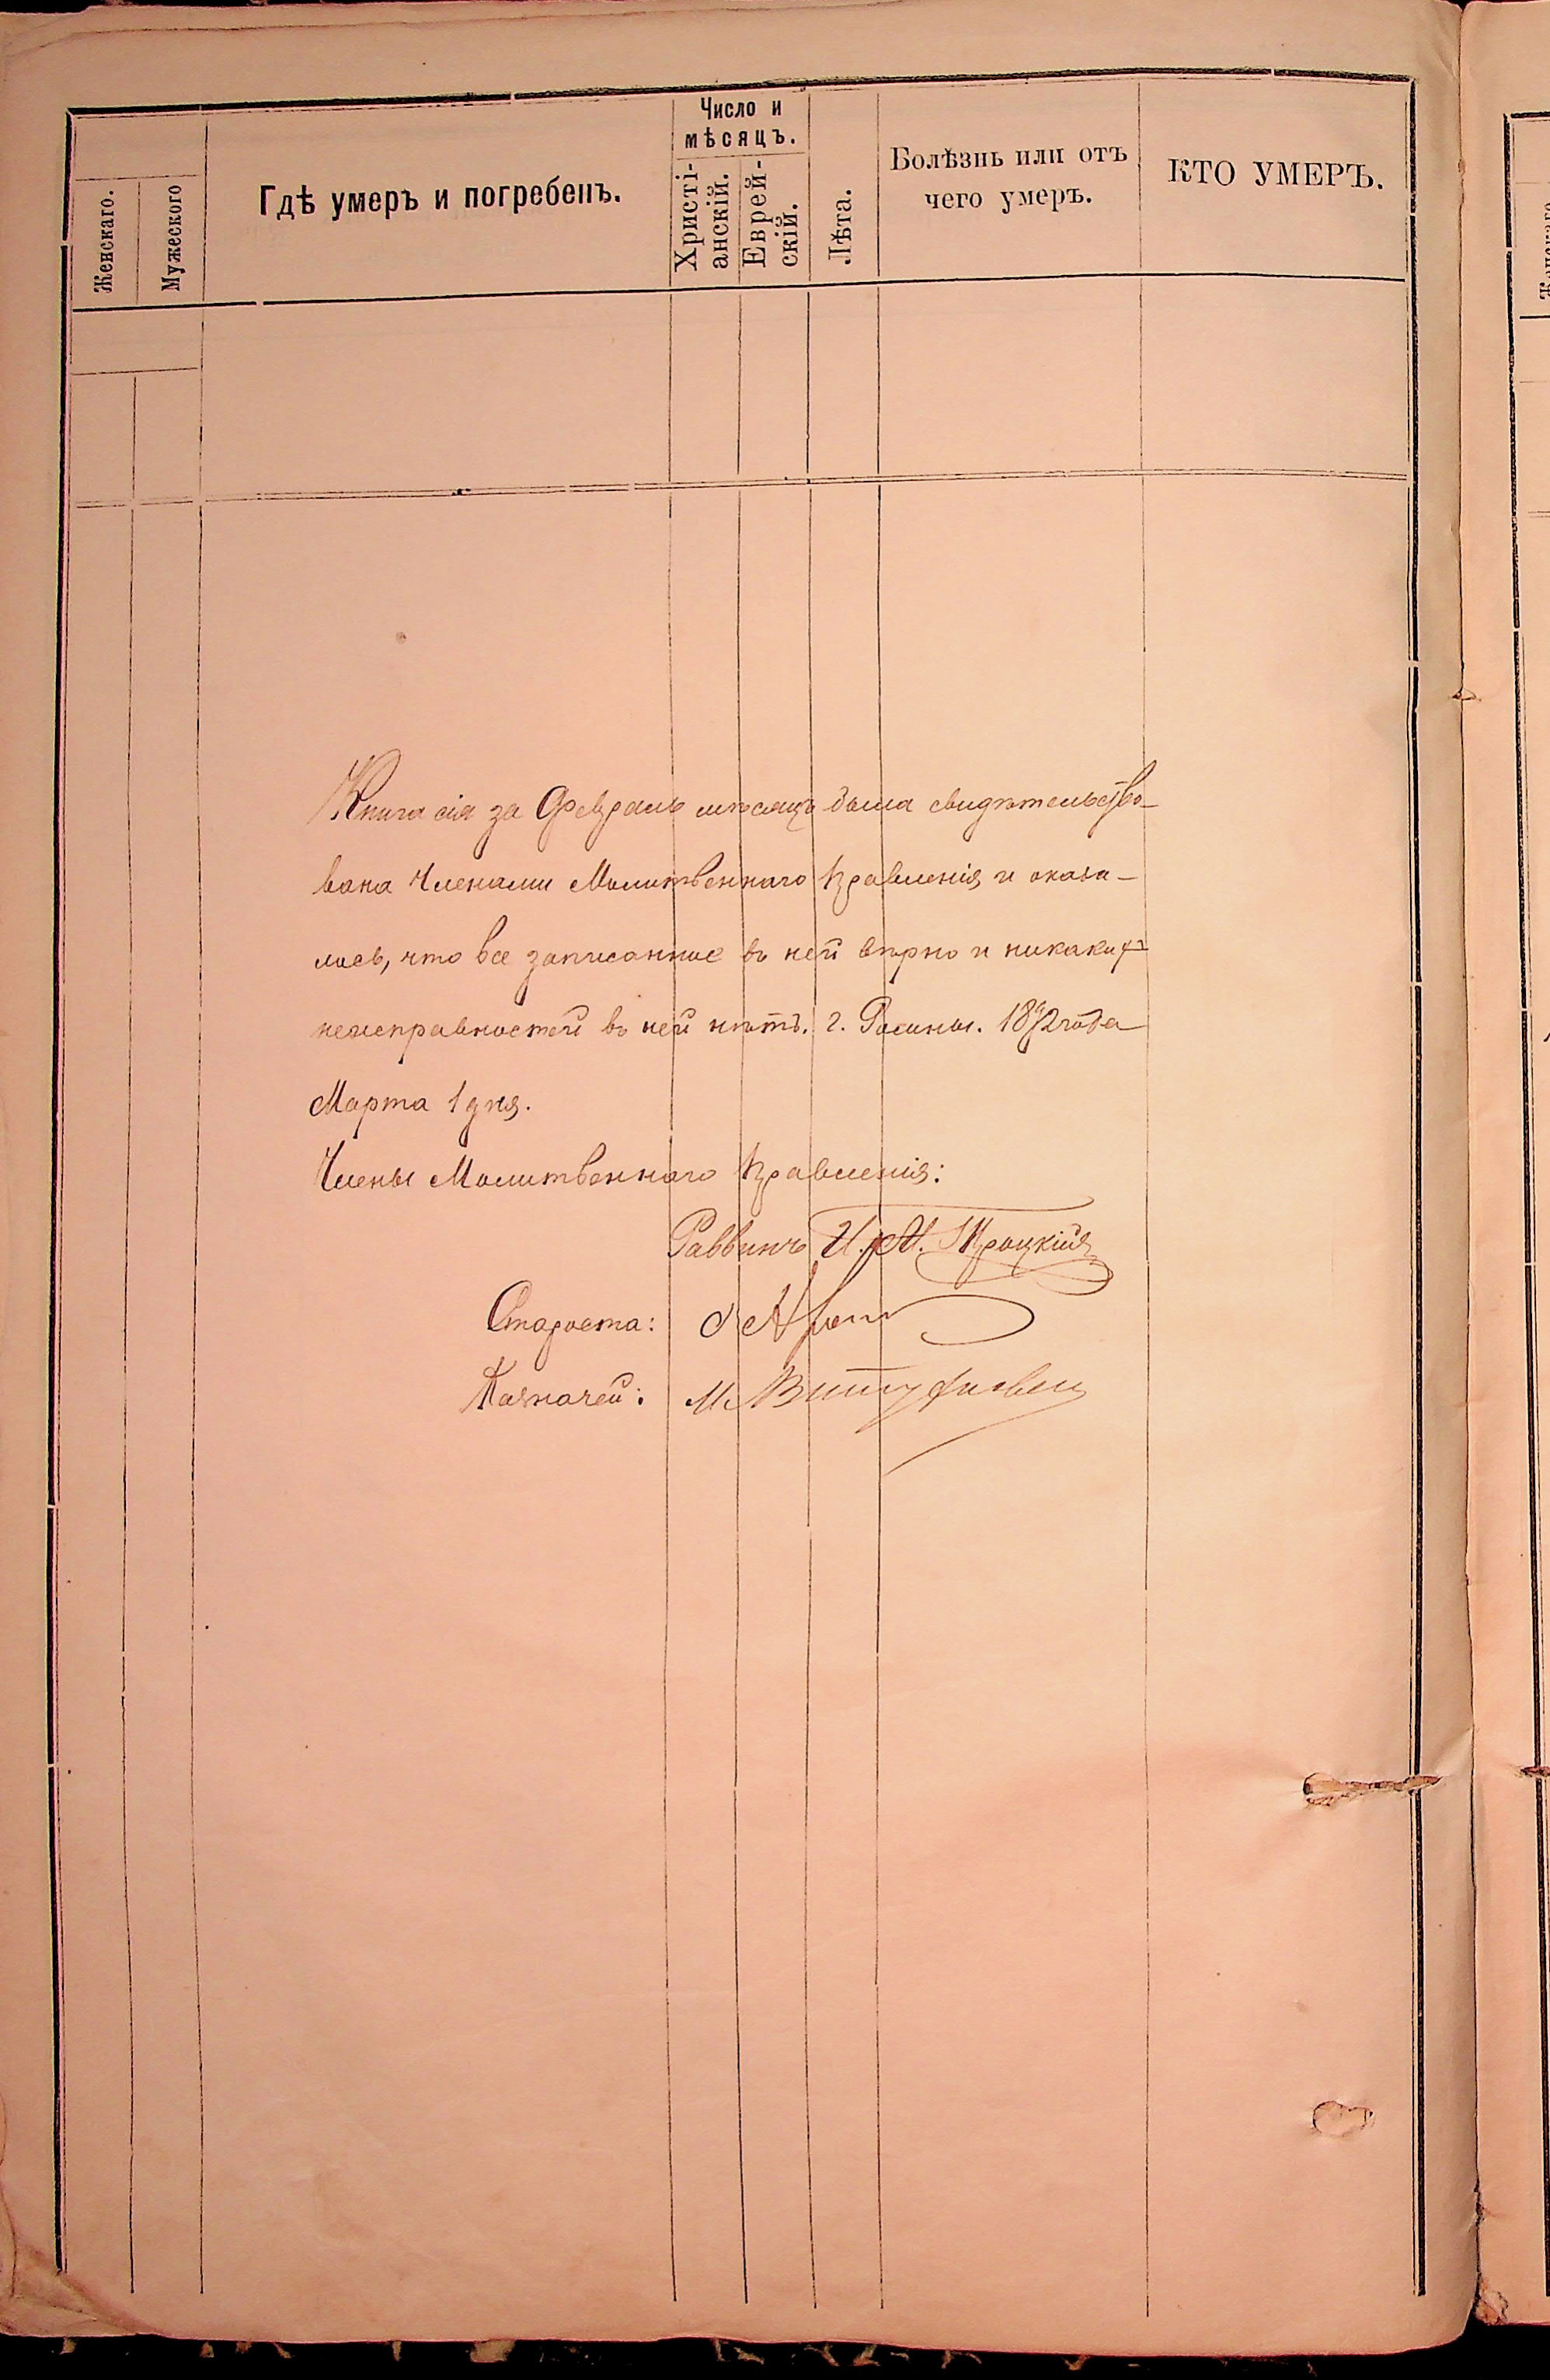 Женскаго.
Мужескаго
Гдѣ умеръ и погребенъ.
Число и
мѣсяцъ.
Христі-
анскій.
Еврей-
скій.
Лѣта.
Болѣзнь или отъ
чего умеръ.
КТО УМЕРЪ.
Книга сія за Февраль мѣсяцъ была свидѣтельство-
вана Членами Молитвеннаго Правленія и оказа-
лось, что все записанное въ ней вѣрно и никакихъ
неисправностей въ ней нѣтъ. г. Росіены. 1892 года
Марта 1 дня.
Члены Молитвеннаго Правленія:
Раввинъ И. М. Троцкій
Староста:
Казначей: М.